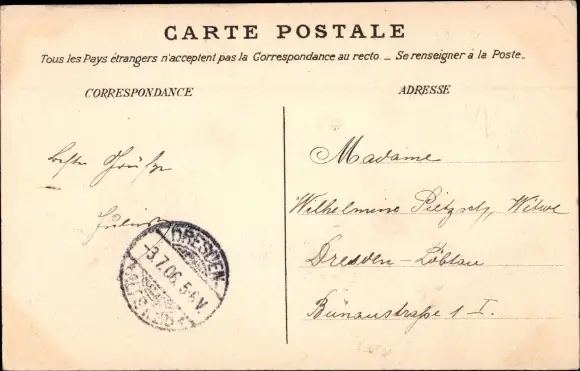 CARTE POSTALE
Tous les Pays étrangers n'acceptent pas la Correspondance au recto. _ Se renseigner à la Poste.
CORRESPONDANCE
ADRESSE
Beste Grüße
Julius
Madame
Wilhelmine Pietzsch, Witwe
Dresden-Löbtau
Bünaustraße 1 I.
DRESDEN
-3.7.06. 5-6V.